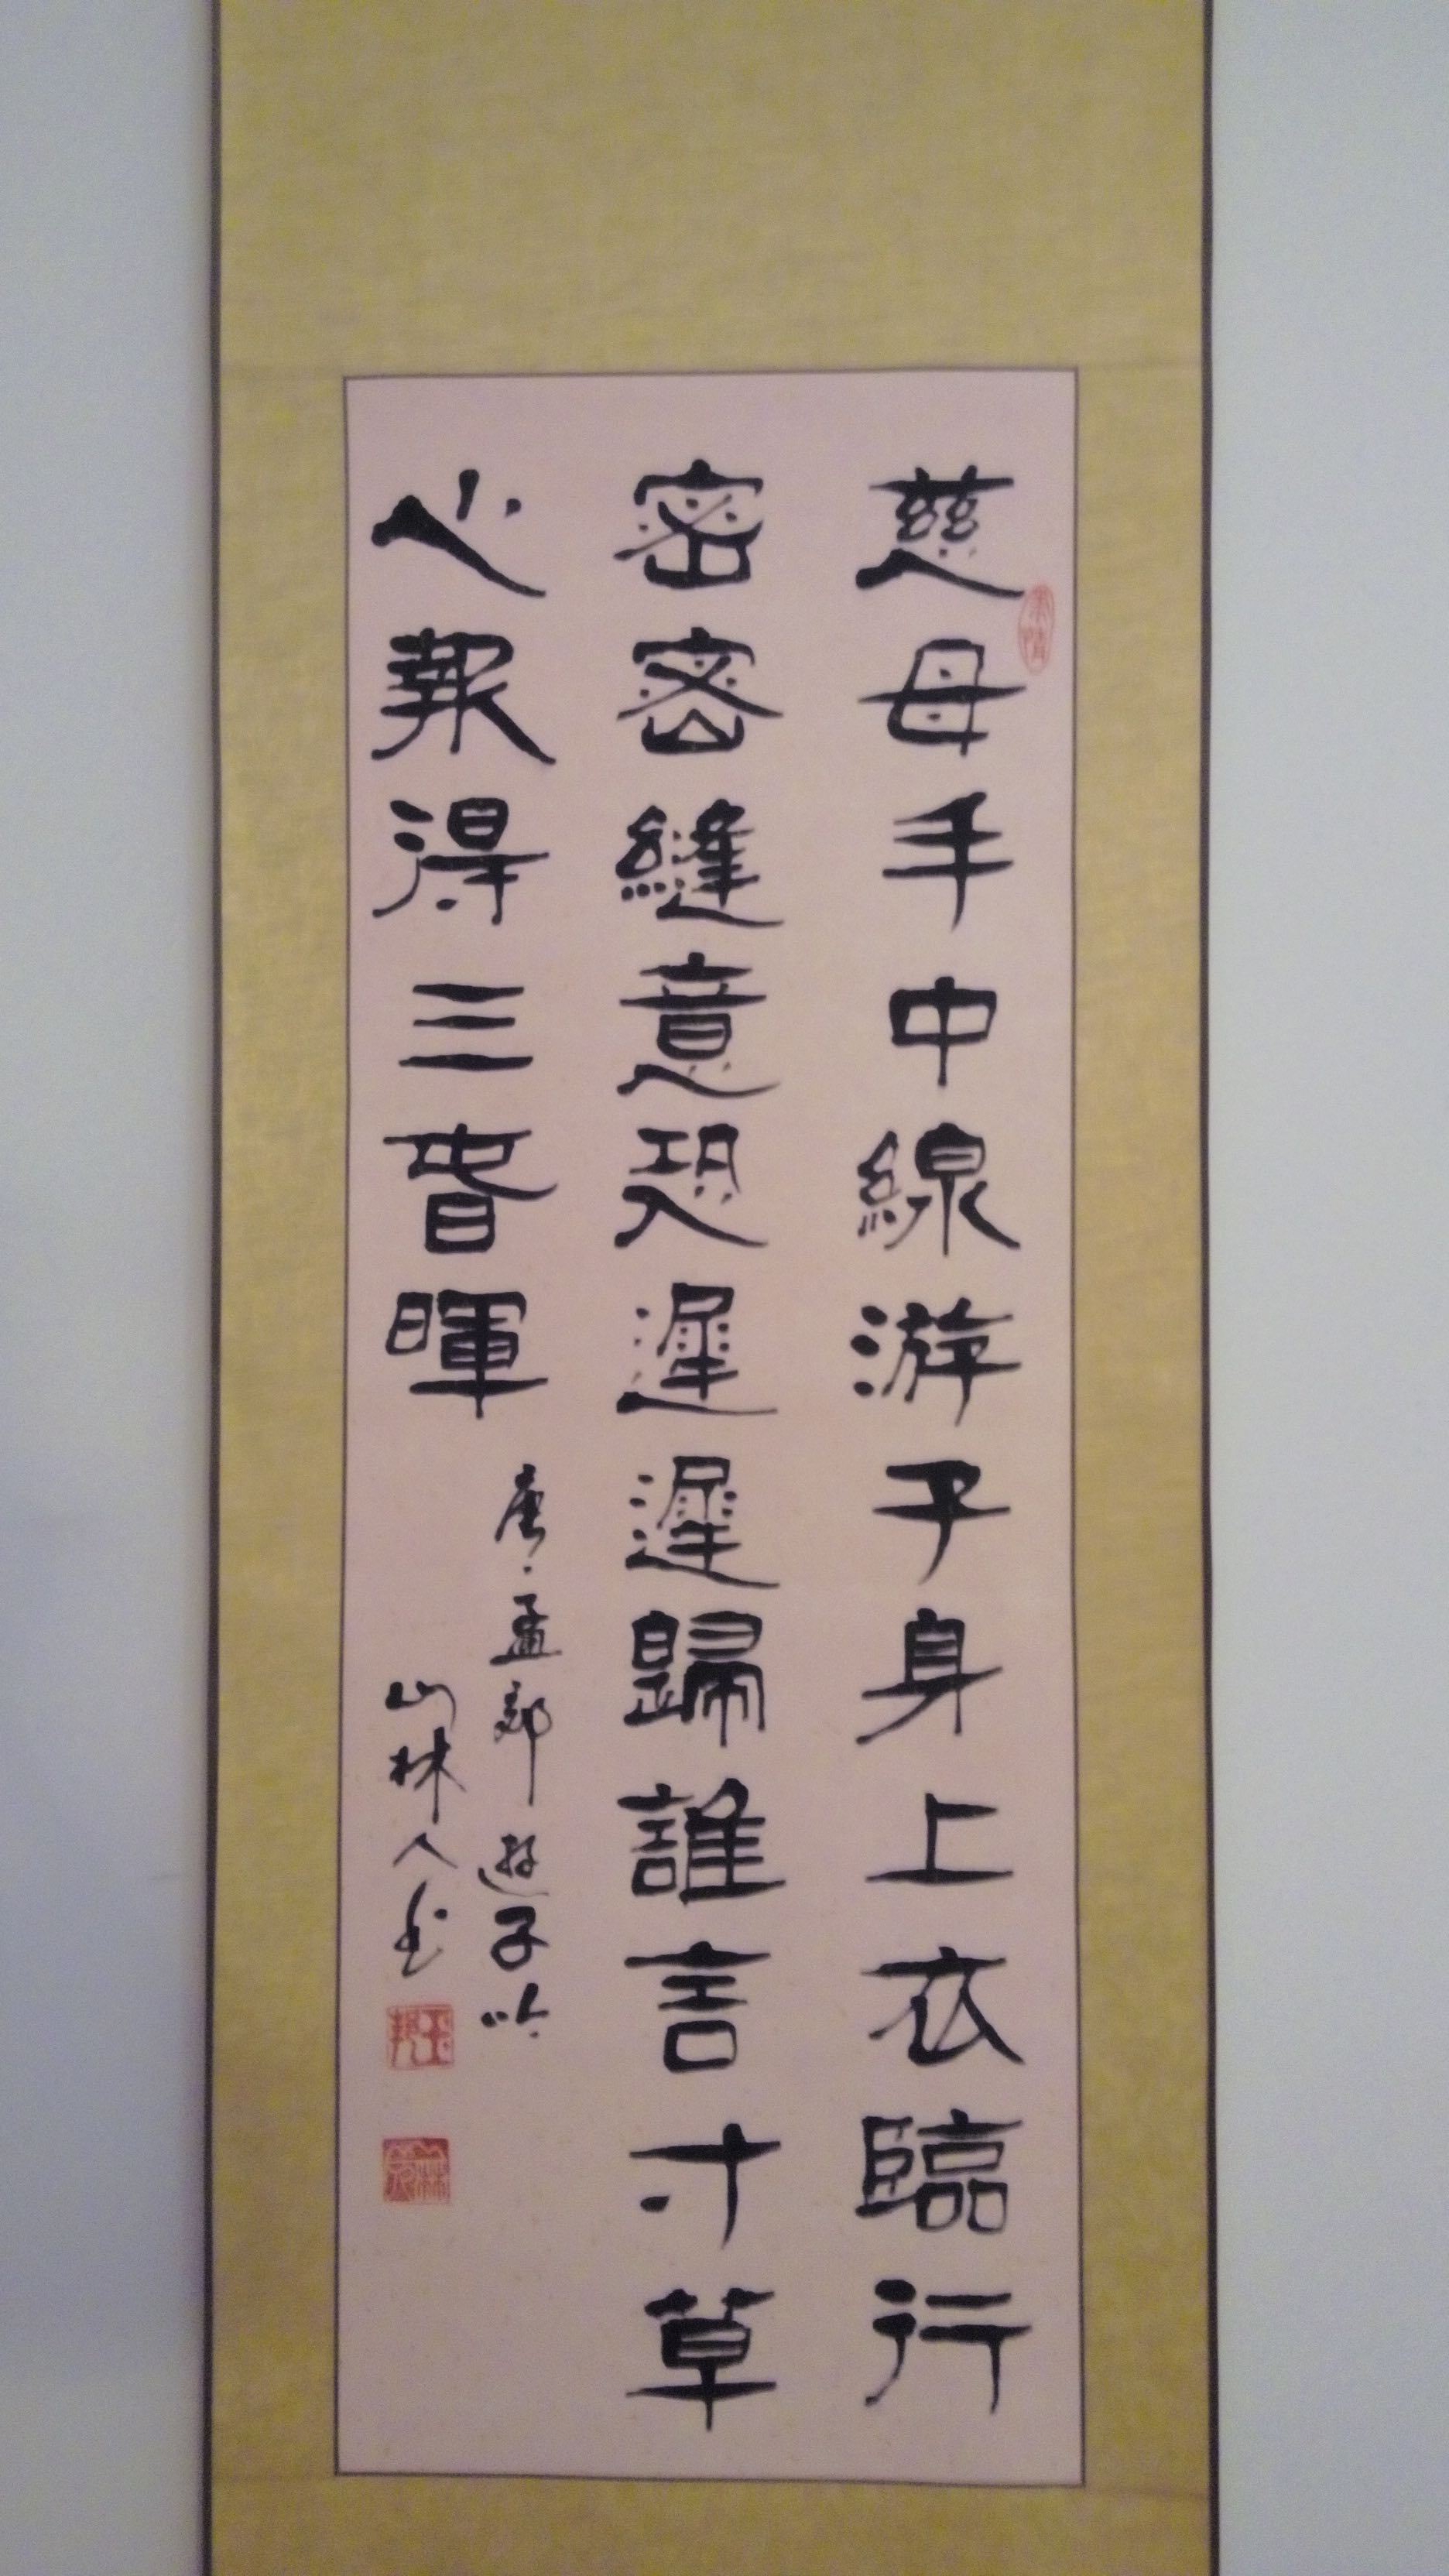 慈母手中線游子身上衣臨行
密密縫意恐遲遲歸誰言寸草
心報得三春暉
唐·孟郊遊子吟
山林人書